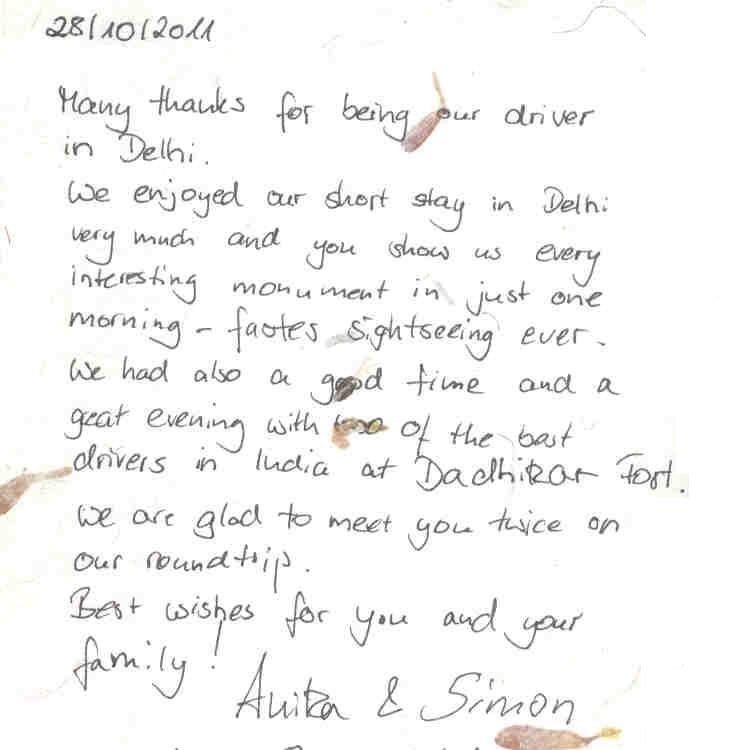 28/10/2011
Many thanks for being our driver
in Delhi.
We enjoyed our short stay in Delhi
very much and you show us every
interesting monument in just one
morning - fastes sightseeing ever.
We had also a good time and a
great evening with two of the best
drivers in India at Dadhikar Fort.
We are glad to meet you twice on
our roundtrip.
Best wishes for you and your
family!
Anika & Simon